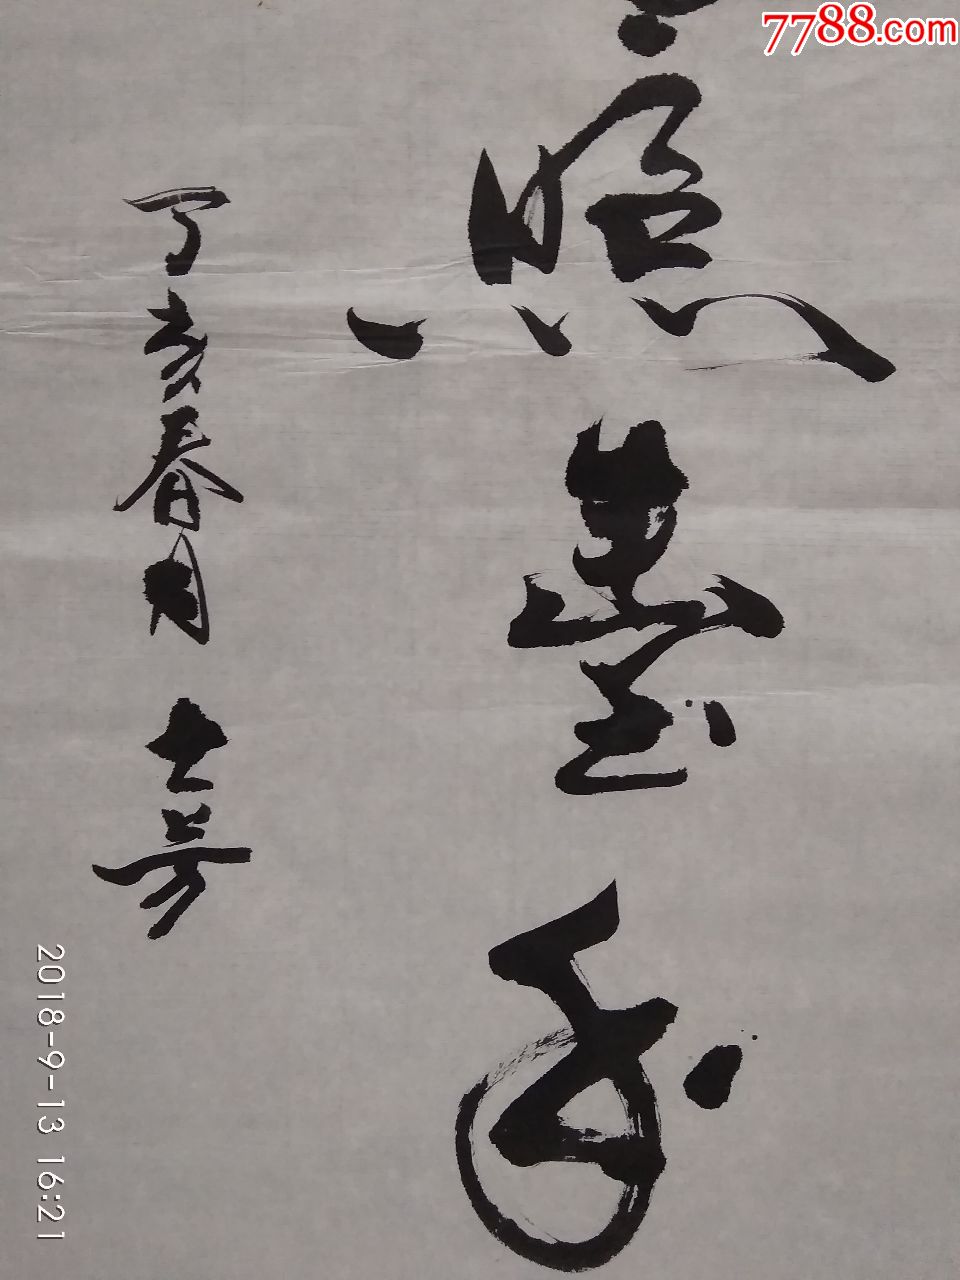 7788.com
照臺
丁亥春月 士芳
2018-9-13 16:21